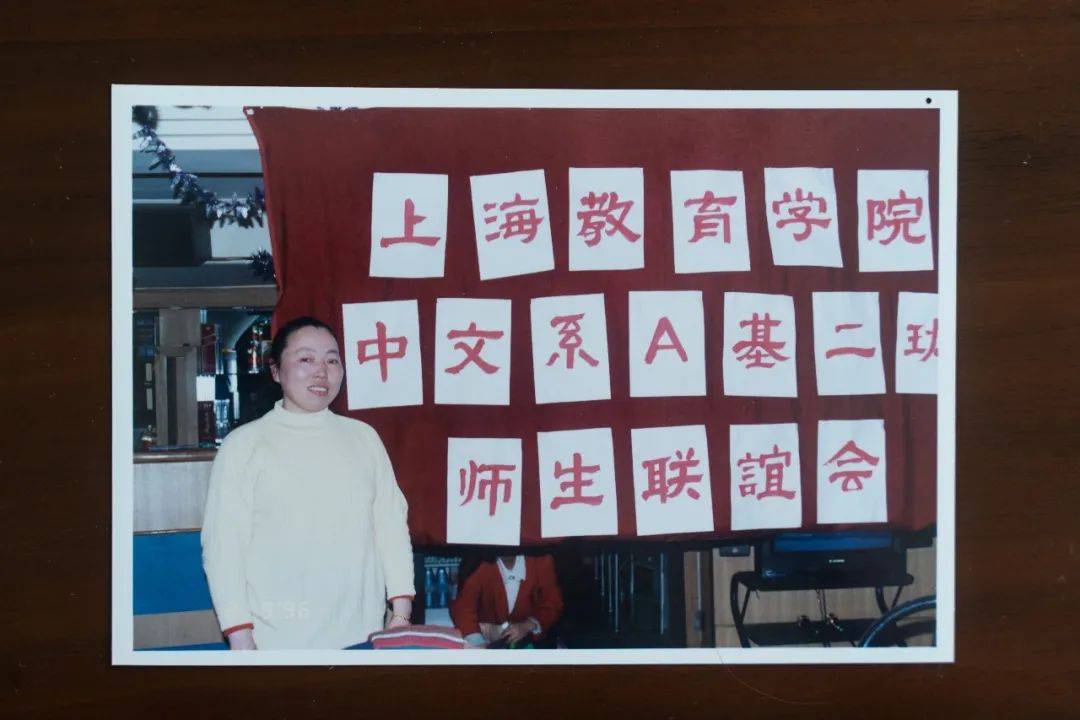 上海教育学院
中文系A基二班
师生联誼会
'96